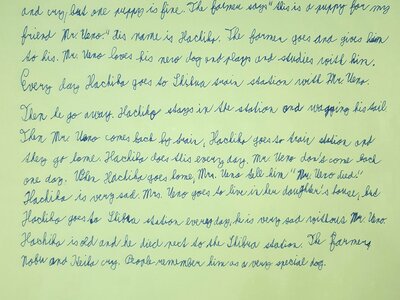 and cry, but one puppy is fine. The farmer says "this is a puppy for my
friend Mr Ueno." His name is Hachiko. The farmer goes and gives him
to his. Mr. Ueno loves his new dog and plays and studies with him.
Every day Hachiko goes to Shibua train station with Mr. Ueno.
Then he go away. Hachiko stays in the station and wagging his tail.
Then Mr. Ueno comes back by train, Hachiko goes to train station and
they go home. Hachiko does this every day. Mr Ueno don't come back
one day. When Hachiko goes home, Mrs. Ueno tells him "Mr. Ueno died."
Hachiko is very sad. Mrs. Ueno goes to live in her daughter's house, but
Hachiko goes to Shibua station every day, he is very sad without Mr. Ueno.
Hachiko is old and he died next to the Shibua station. The farmer,
Nobu and Keiko cry. People remember him as a very special dog.